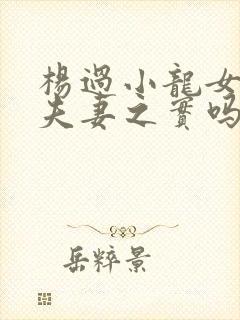 楊過小龍女
夫妻之實吗
岳粹景